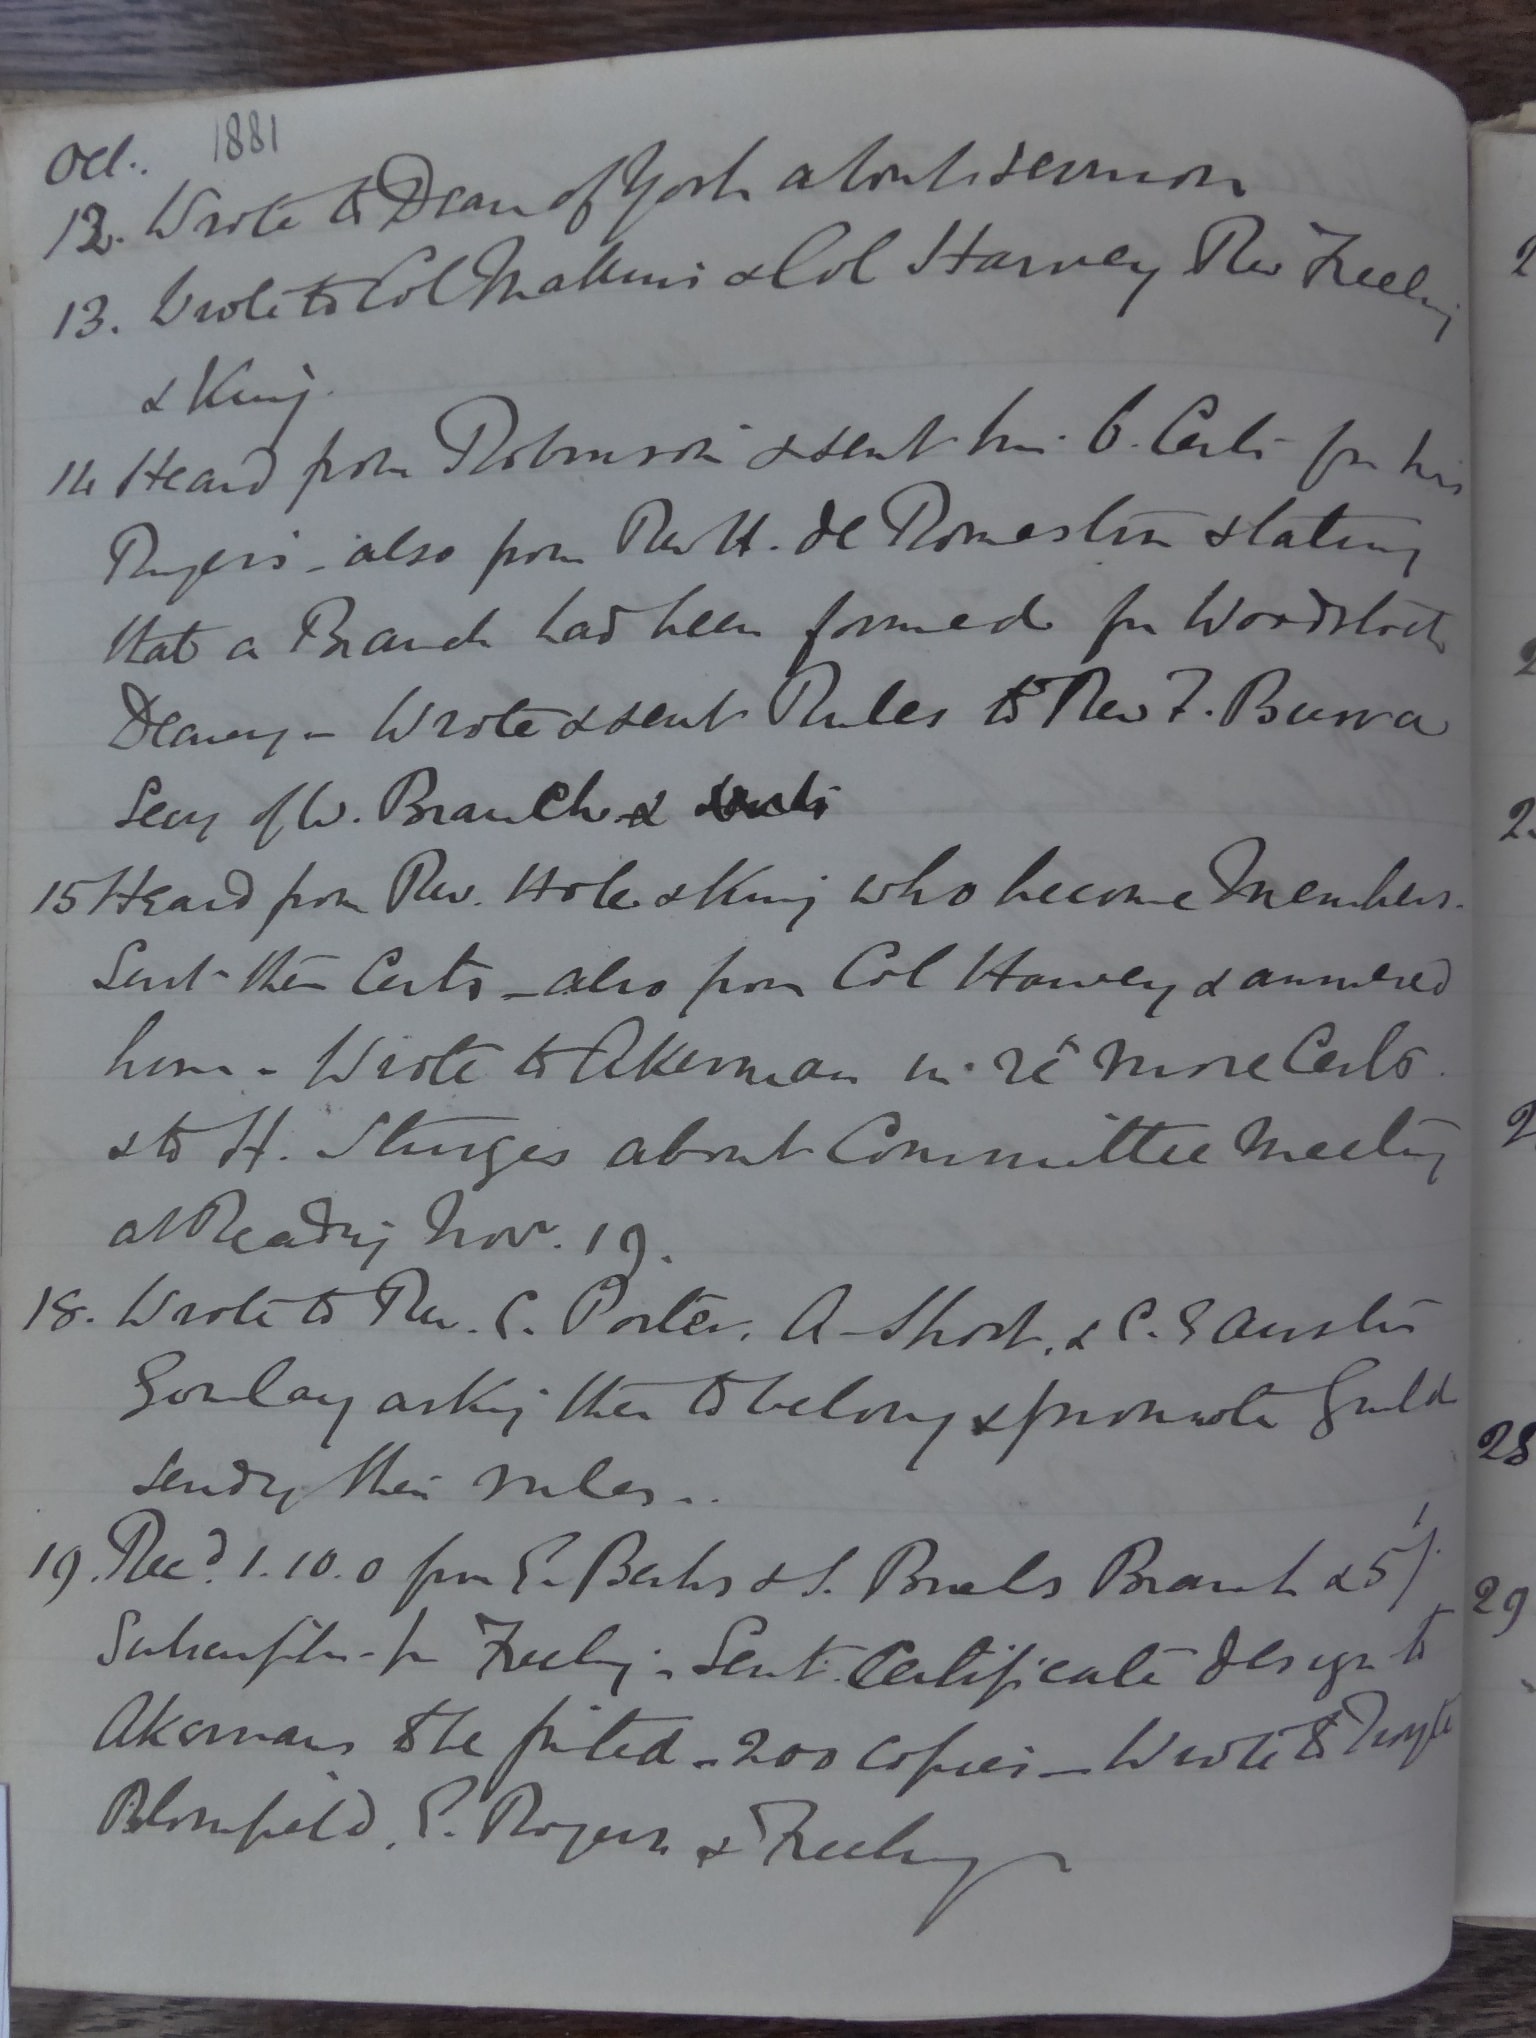 Oct. 1881
12. Wrote to Dean of York about sermon
13. Wrote to Col & Col Harvey Rev Freeling
& King.
14 Heard from Robinson & sent him 6. Certs for his
Ringers - also from Rev H. de Romestin stating
that a Branch had been formed for Woodstock
Deanery - Wrote & sent Rules to Rev F. Burra
Secy of W. Branch &
15 Heard from Rev. Hole & King who become Members.
Sent them Certs - also from Col Harvey & answered
him - Wrote to Akerman in re more Certs
& to H. Sturges about Committee Meeting
at Reading Nov. 19.
18. Wrote to Rev. C. Porter, A Short, & C. E Austin
Gourlay asking them to belong & promote Guild
sendg their rules..
19. Recd. 1.10.0 from E. Berks & S. Bucks Branch & 5/
Subscription for Freeling - Sent Certificate design to
Akerman to be printed - 200 copies - Wrote to
Blomfield, E. Rogers & Freeling
2
2
2
2
28
29